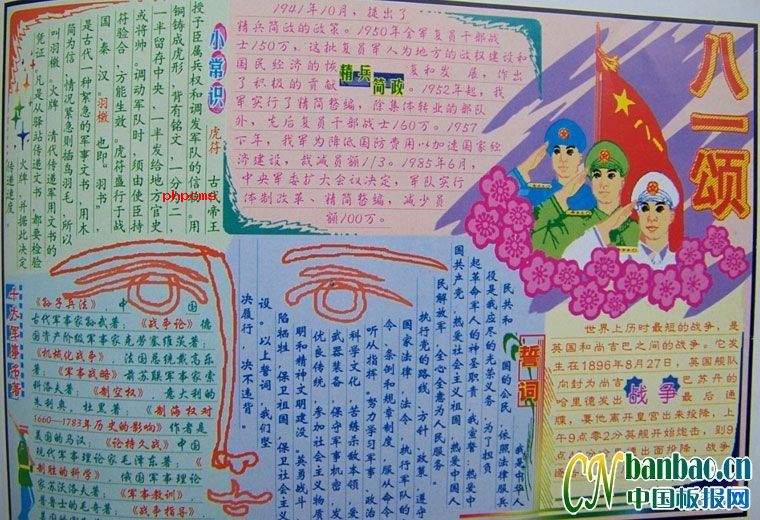 八一颂
1941年10月，提出了
精兵简政的政策。1950年全军复员干部战
士150万，这批复员军人为地方的政权建设和
国民经济的恢复和发展，作出
了积极的贡献。1952年起，我
精兵简政
军实行了精简整编，除集体转业的部队
外，先后复员干部战士160万。1957
下年，我军为降低国防费用以加速国家经
济建设，裁减员额1/3。1985年6月，
中央军委扩大会议决定，军队实行
体制改革、精简整编，减少员
额100万。
小常识
虎符 古代帝王
授于臣属兵权和调发军队的信物。用
铜铸成虎形，背有铭文，一分为二，
一半留存中央，一半发给地方官史
或将帅。调动军队时，须由使臣持
符验合，方能生效。虎符盛行于战
国、秦、汉。羽檄 也即"羽书"，
是古代一种紧急的军事文书，用木
简为信，情况紧急则插鸟羽毛，所以
叫羽檄。火牌 清代传递军用文书的
凭证，凡是从驿站传递文书，都要检验
火牌，并据此决定
传递速度。
phpcms
《孙子兵法》，中国
古代军事家孙武著；《战争论》德
国资产阶级军事家克劳塞维茨著；
《机械化战争》法国恩德戴高乐
著；《军事战略》前苏联军事家索
科洛夫著；《制空权》意大利的
朱利奥，杜黑著；《制海权对
1660—1783年历史的影响》作者是
美国的马汉；《论持久战》中国
现代军事理论家毛泽东著；《
制胜的科学》，俄国军事理论
家苏沃洛夫著；《军事教训》
普鲁士的毛奇著；《战争指导》
誓词
我是中华人
民共和国的公民，依照法律服兵
役是我应尽的光荣义务，为了担负
起革命军人的神圣职责，我宣誓：热爱中
国共产党，热爱社会主义祖国，热爱中国人
民解放军，全心全意为人民服务，
执行党的路线、方针、政策，遵守
国家法律、法令，执行军队的
条令、条例和规章制度，服从命令，
听从指挥，努力学习军事、政治、
科学文化，苦练杀敌本领，爱护
武器装备，保守军事机密，发扬
优良传统，参加社会主义物质
文明和精神文明建设。英勇战斗，
保卫祖国，保卫社会主义建
设。以上誓词，我们坚
决履行，决不违背。
世界上历时最短的战争，是
英国和尚吉巴之间的战争。它发
生在1896年8月27日，英国舰队
战争
向封为尚吉巴苏丹的
哈里德发出最后通
牒，要他离开皇宫出来投降，上
午9点零2分英舰开始炮击，到9
CNbanbao.cn
中国板报网